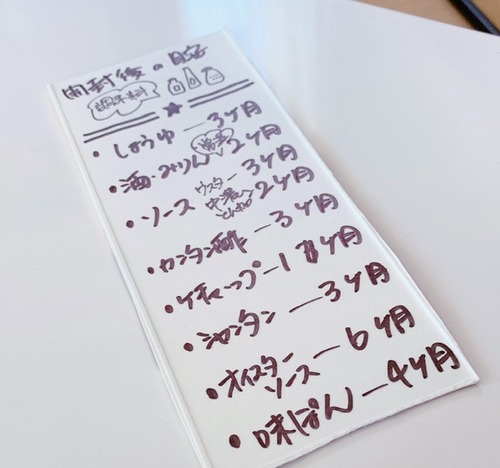 開封後の目安
調味料
・しょうゆ ― 3ヶ月
・酒・みりん 常温 2ヶ月
・ソース ウスター 3ヶ月
中濃 とんかつ 2ヶ月
・カンタン酢 ― 3ヶ月
・ケチャップ ― 1ヶ月
・シャンタン ― 3ヶ月
・オイスターソース ― 6ヶ月
・味ぽん ― 4ヶ月